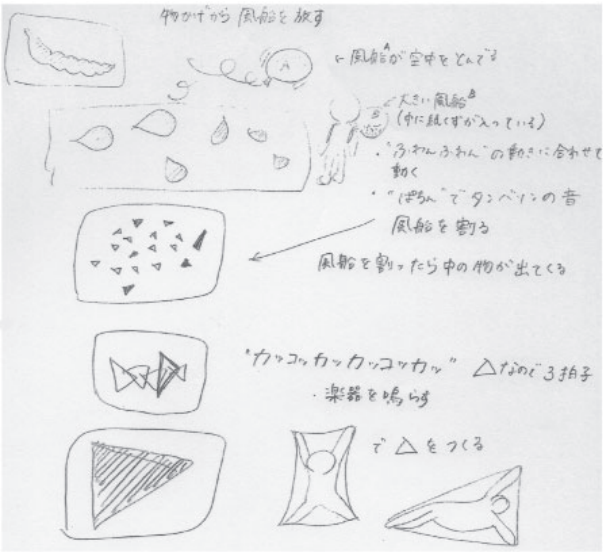 物かげから風船を放す
A
←風船Aが空中をとんでる
B
←大きい風船B
(中に紙くずが入っている)
・"ふわんふわん"の動きに合わせて
動く
・"ぱちん"でタンバリンの音
風船を割る
風船を割ったら中の物が出てくる
"カッコッカッカッコッカッ" △なので3拍子
・楽器を鳴らす
で△をつくる